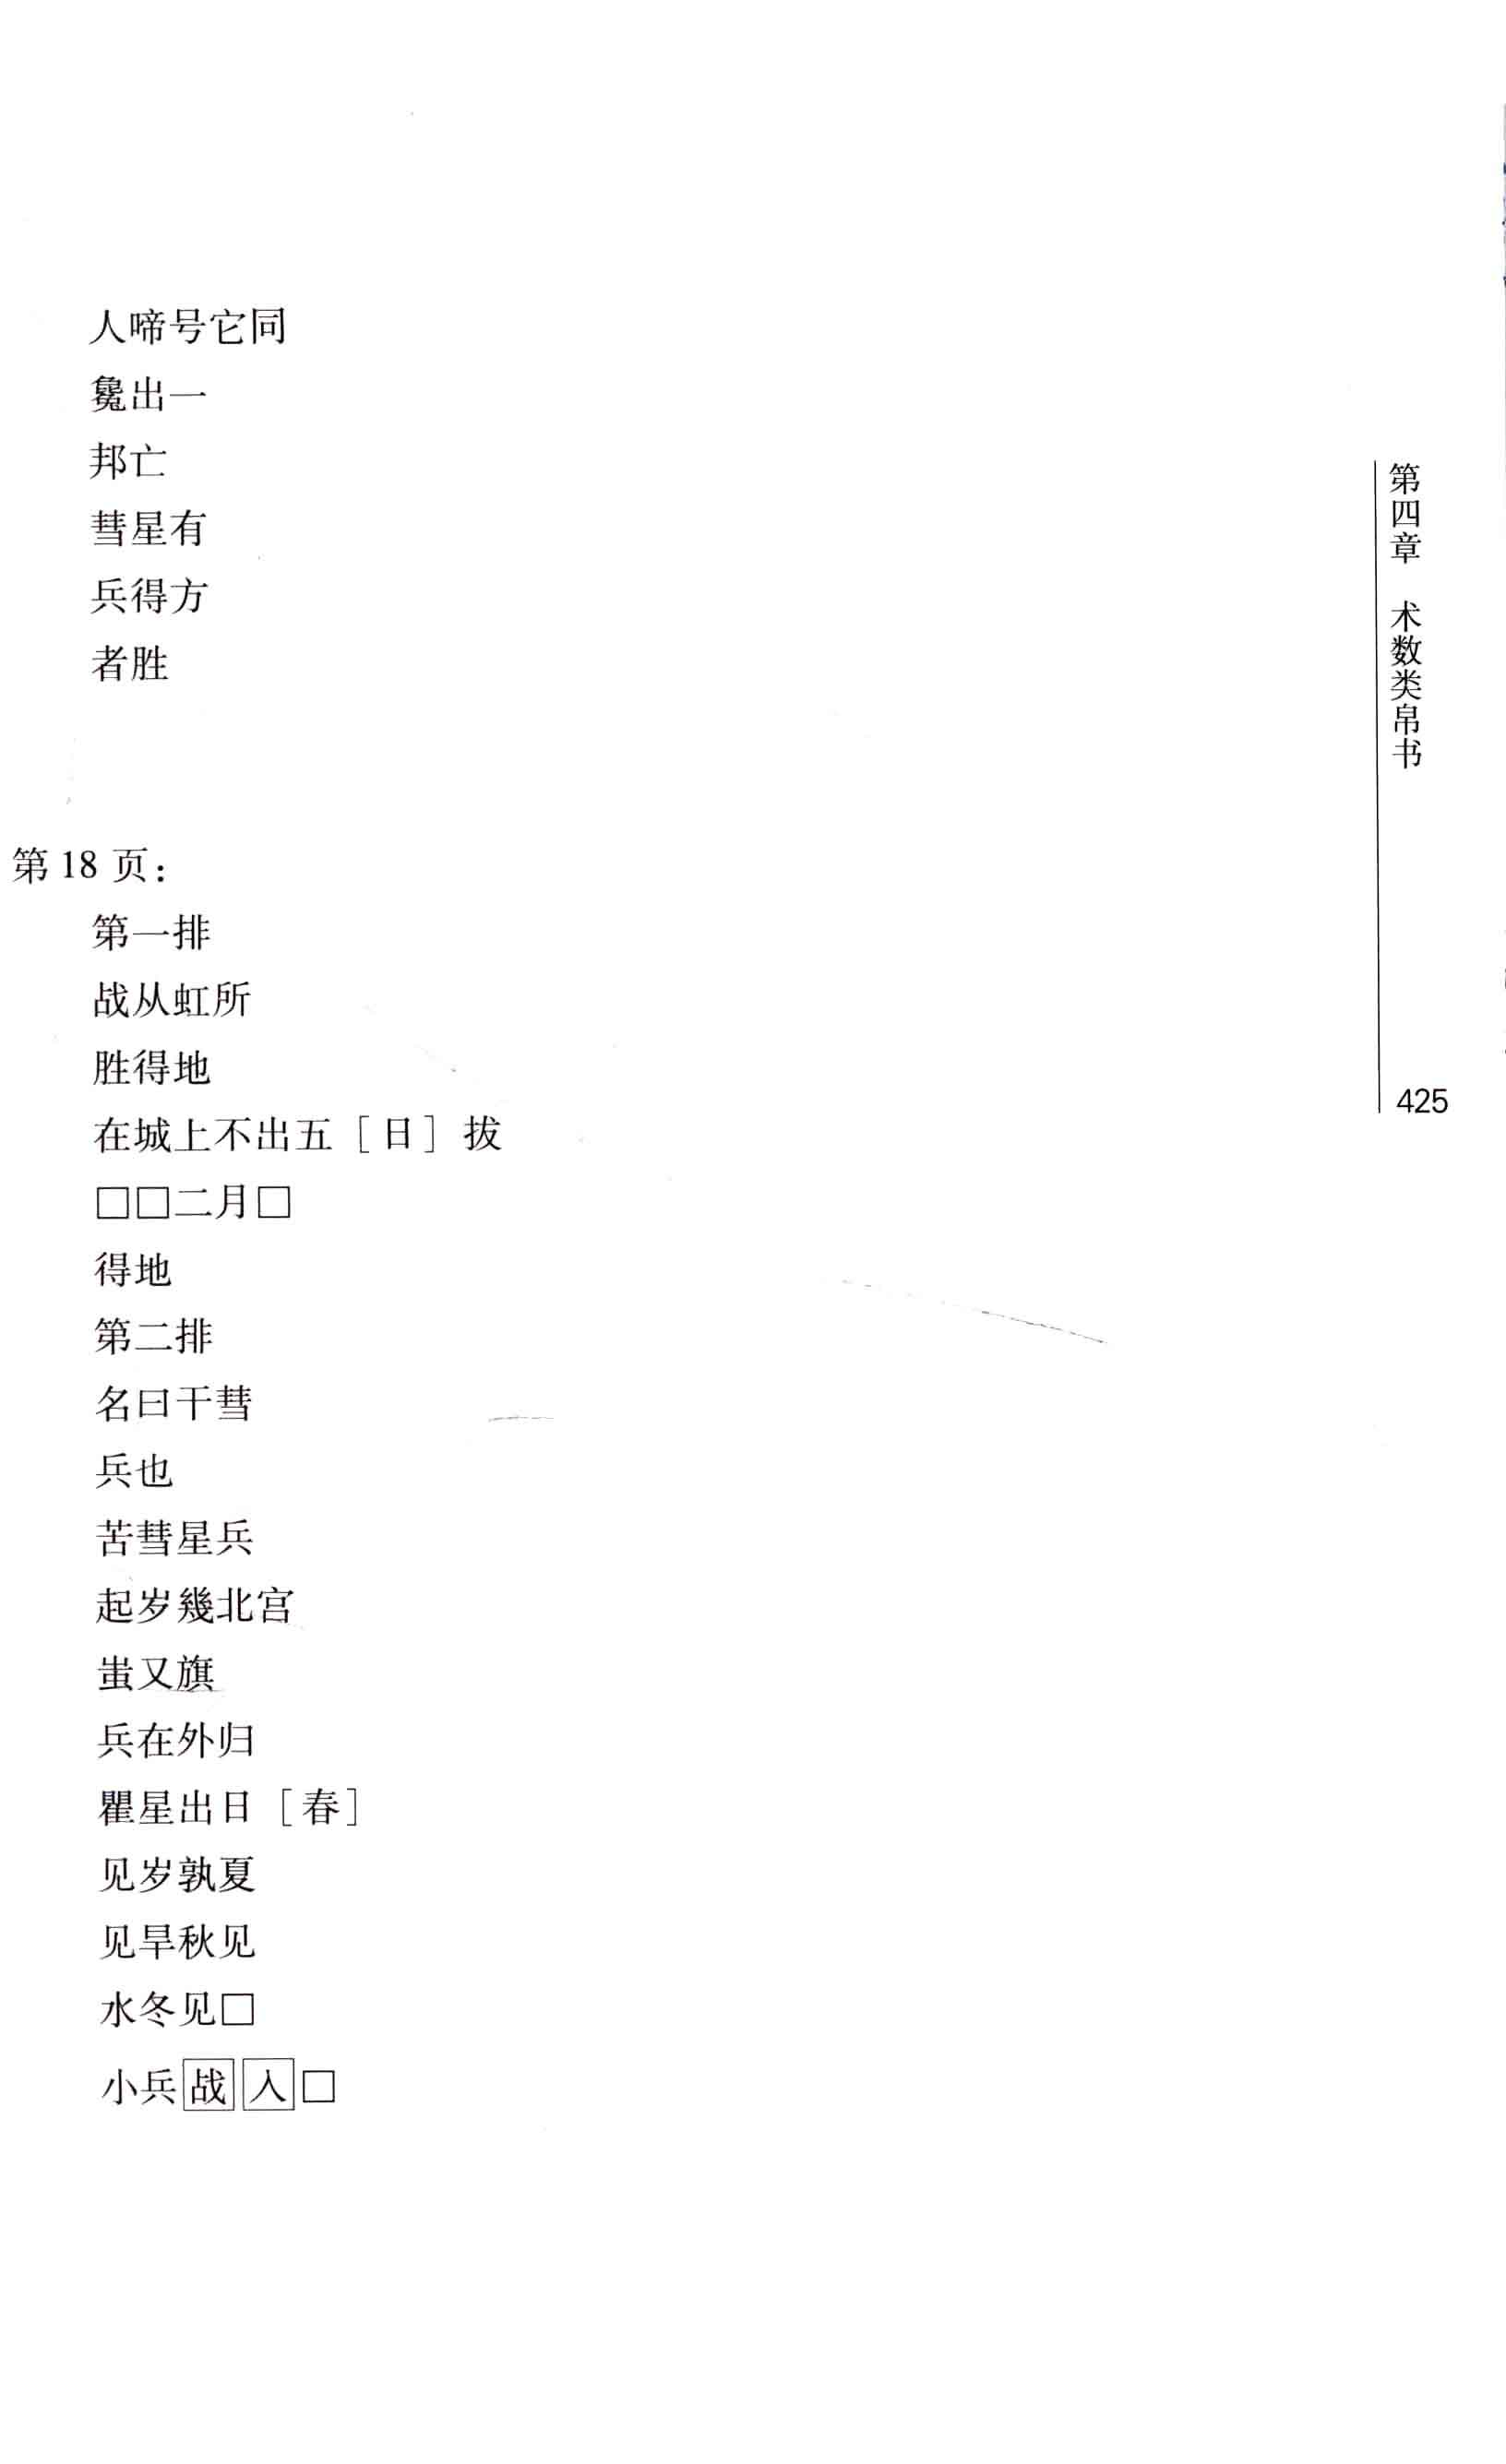 人啼号它同
毚出一
邦亡
彗星有
兵得方
者胜
第18页：
第一排
战从虹所
胜得地
在城上不出五［日］拔
□□二月□
得地
第二排
名曰干彗
兵也
苦彗星兵
起岁幾北宫
蚩又旗
兵在外归
瞿星出日［春］
见岁孰夏
见旱秋见
水冬见□
小兵战人□
第四章 术数类帛书
425